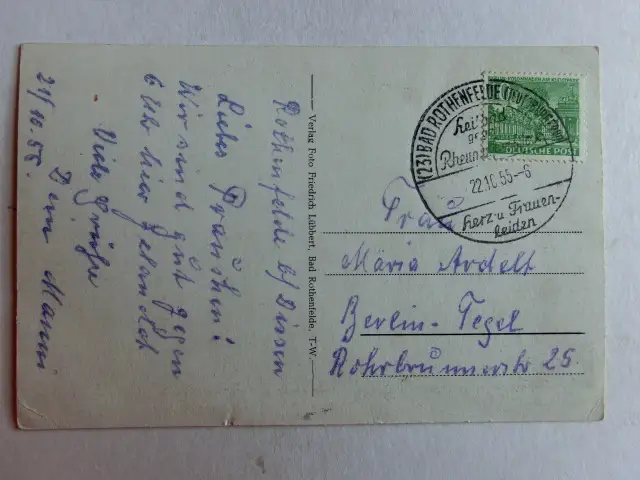 Rothenfelde b/Dissen
Liebes Frauchen!
Wir sind gut gegen
6 Uhr hier gelandet
Viele Grüße
Dein Manni
21/10.55.
Verlag Foto Friedrich Lübbert, Bad Rothenfelde, T.-W.
(23) BAD ROTHENFELDE (TEUTOBURGER
Heilbad
Rheum
22.10.55.-6
Herz-u Frauen-
leiden
DEUTSCHE POST
Frau
Maria Ardelt
Berlin-Tegel
Rohrbrunnerstr 25.